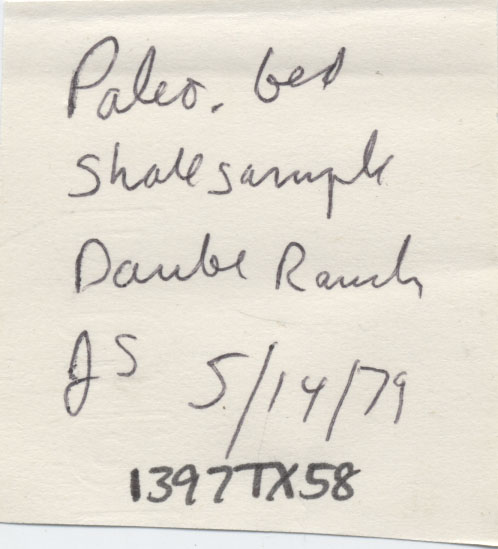 Paleo. bed
Shale sample
Daube Ranch
JS 5/14/79
1397TX58